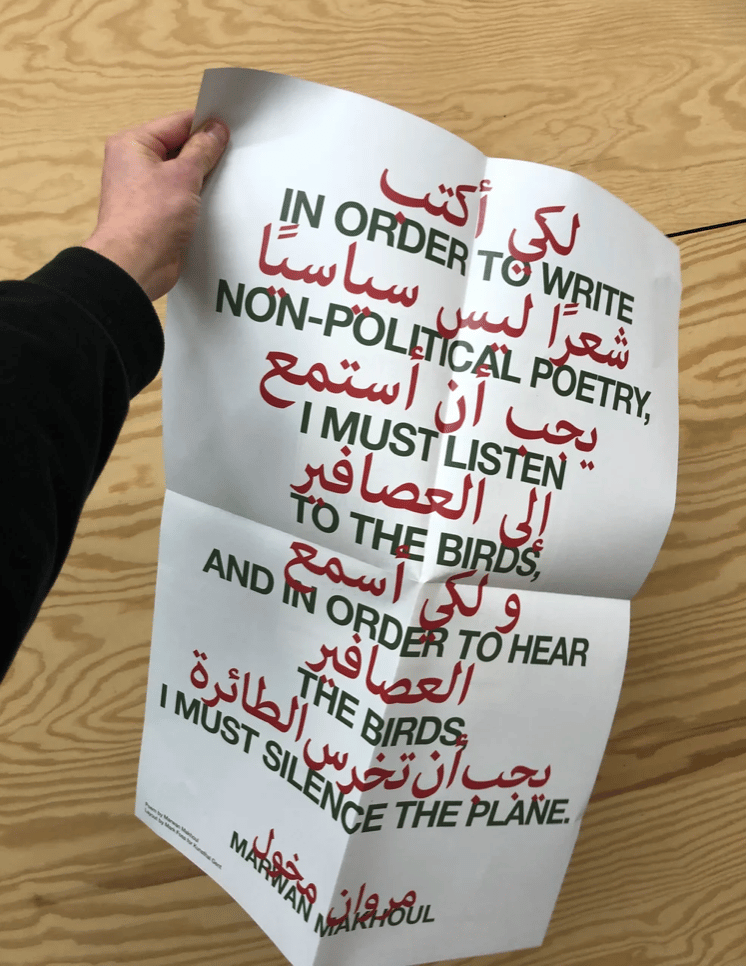 لكي أكتب
IN ORDER TO WRITE
شعرًا ليس سياسيًا
NON-POLITICAL POETRY,
يجب أن أستمع
I MUST LISTEN
إلى العصافير
TO THE BIRDS,
و لكي أسمع
AND IN ORDER TO HEAR
العصافير
THE BIRDS,
يجب أن تخرس الطائرة
I MUST SILENCE THE PLANE.
Poem by Marwan Makhoul
مروان مخول
MARWAN MAKHOUL